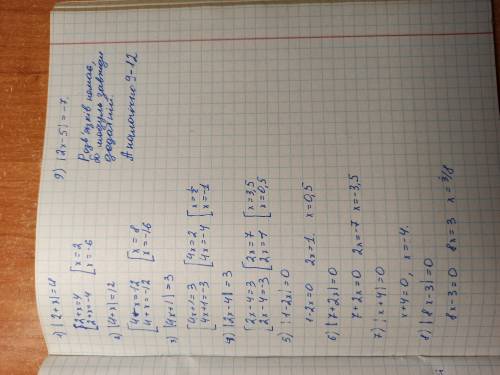 1) |2+x|=4
[2+x=4 [x=2
2+x=-4 x=-6
2) |4+x|=12
[4+x=12 [x=8
4+x=-12 x=-16
3) |4x+1|=3
[4x+1=3 [4x=2 [x=½
4x+1=-3 4x=-4 x=-1
4) |2x-4|=3
[2x-4=3 [2x=7 [x=3,5
2x-4=-3 2x=1 x=0,5
5) |1-2x|=0
1-2x=0 2x=1. x=0,5
6) |7+2x|=0
7+2x=0 2x=-7 x=-3,5
7) |x+4|=0
x+4=0, x=-4.
8) |8x-3|=0
8x-3=0 8x=3 x=3/8
9) |2x-5|=-7.
Розв'язків немає,
бо модуль завжди
додатній.
Аналогічно 9-12